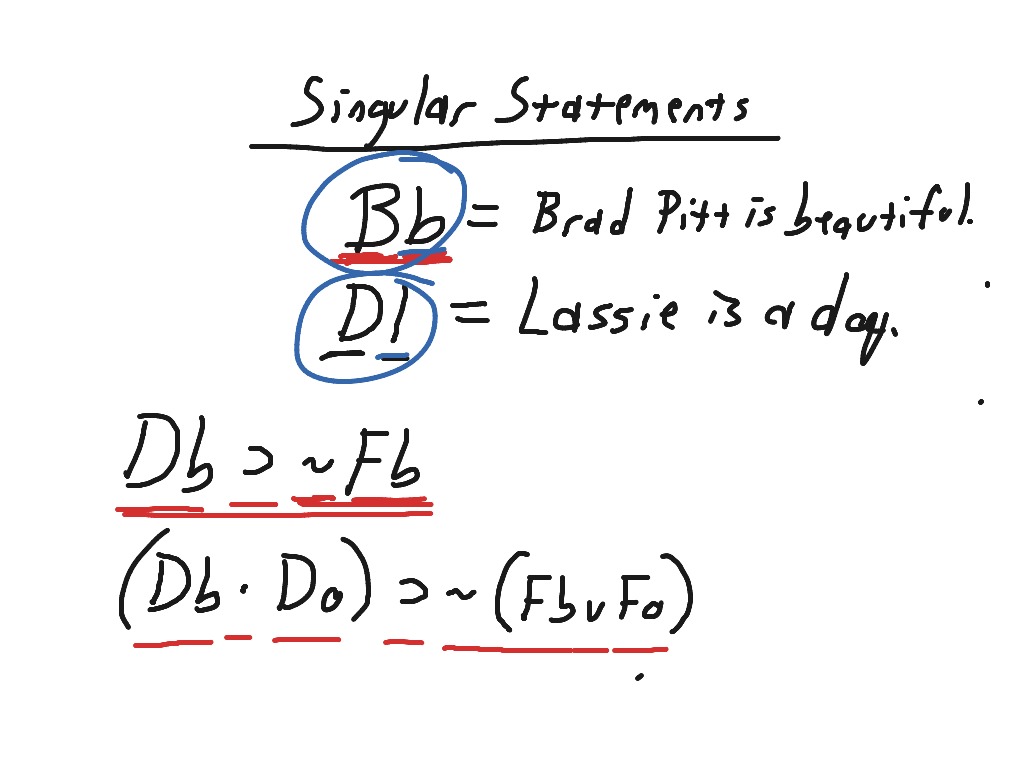 Singular Statements
Bb = Brad Pitt is beautiful.
Dl = Lassie is a dog.
Db ⊃ ~Fb
(Db · Do) ⊃ ~(Fb v Fo)